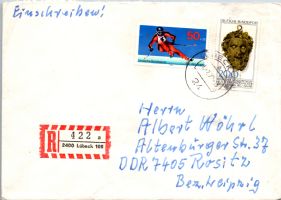 Einschreiben!
50
DEUTSCHE BUNDESPOST
200
R 422 a
2400 Lübeck 106
24
Herrn
Albert Wöhrl
Altenburger Str. 37
DDR 7405 Rositz
Bez. Leipzig